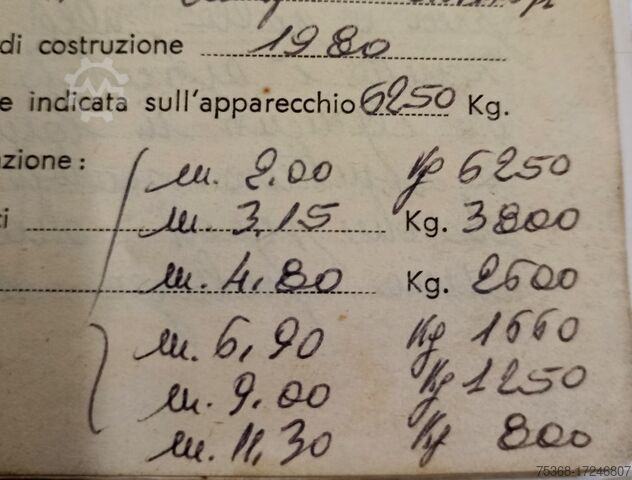 di costruzione 1980
e indicata sull'apparecchio 6250 Kg.
azione: m. 2.00 Kg 6250
ti m. 3,15 Kg. 3800
m. 4,80 Kg. 2500
m. 6,90 Kg 1660
m. 9.00 Kg 1250
m. 11,30 Kg 800
75368-17246807